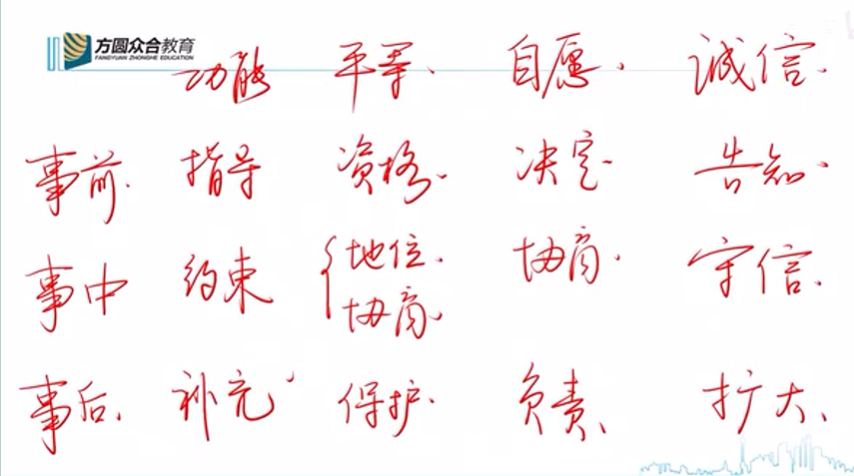 方圆众合教育
FANGYUAN ZHONGHE EDUCATION
功能 平等. 自愿. 诚信.
事前. 指导 资格. 决定. 告知.
事中 约束 地位. 协商. 守信.
协商.
事后. 补充 保护. 负责. 扩大.